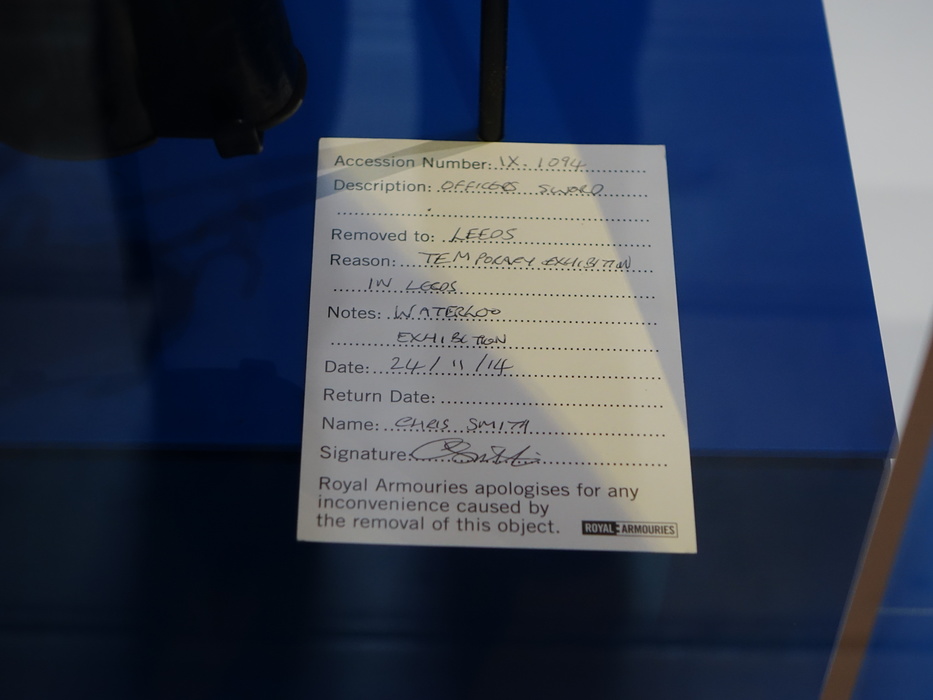 Accession Number: IX. 1094
Description: OFFICERS SWORD
Removed to: LEEDS
Reason: TEMPORARY EXHIBITION
IN LEEDS
Notes: WATERLOO
EXHIBITION
Date: 24/11/14
Return Date:
Name: CHRIS SMITH
Signature:
Royal Armouries apologises for any
inconvenience caused by
the removal of this object.
ROYAL ARMOURIES